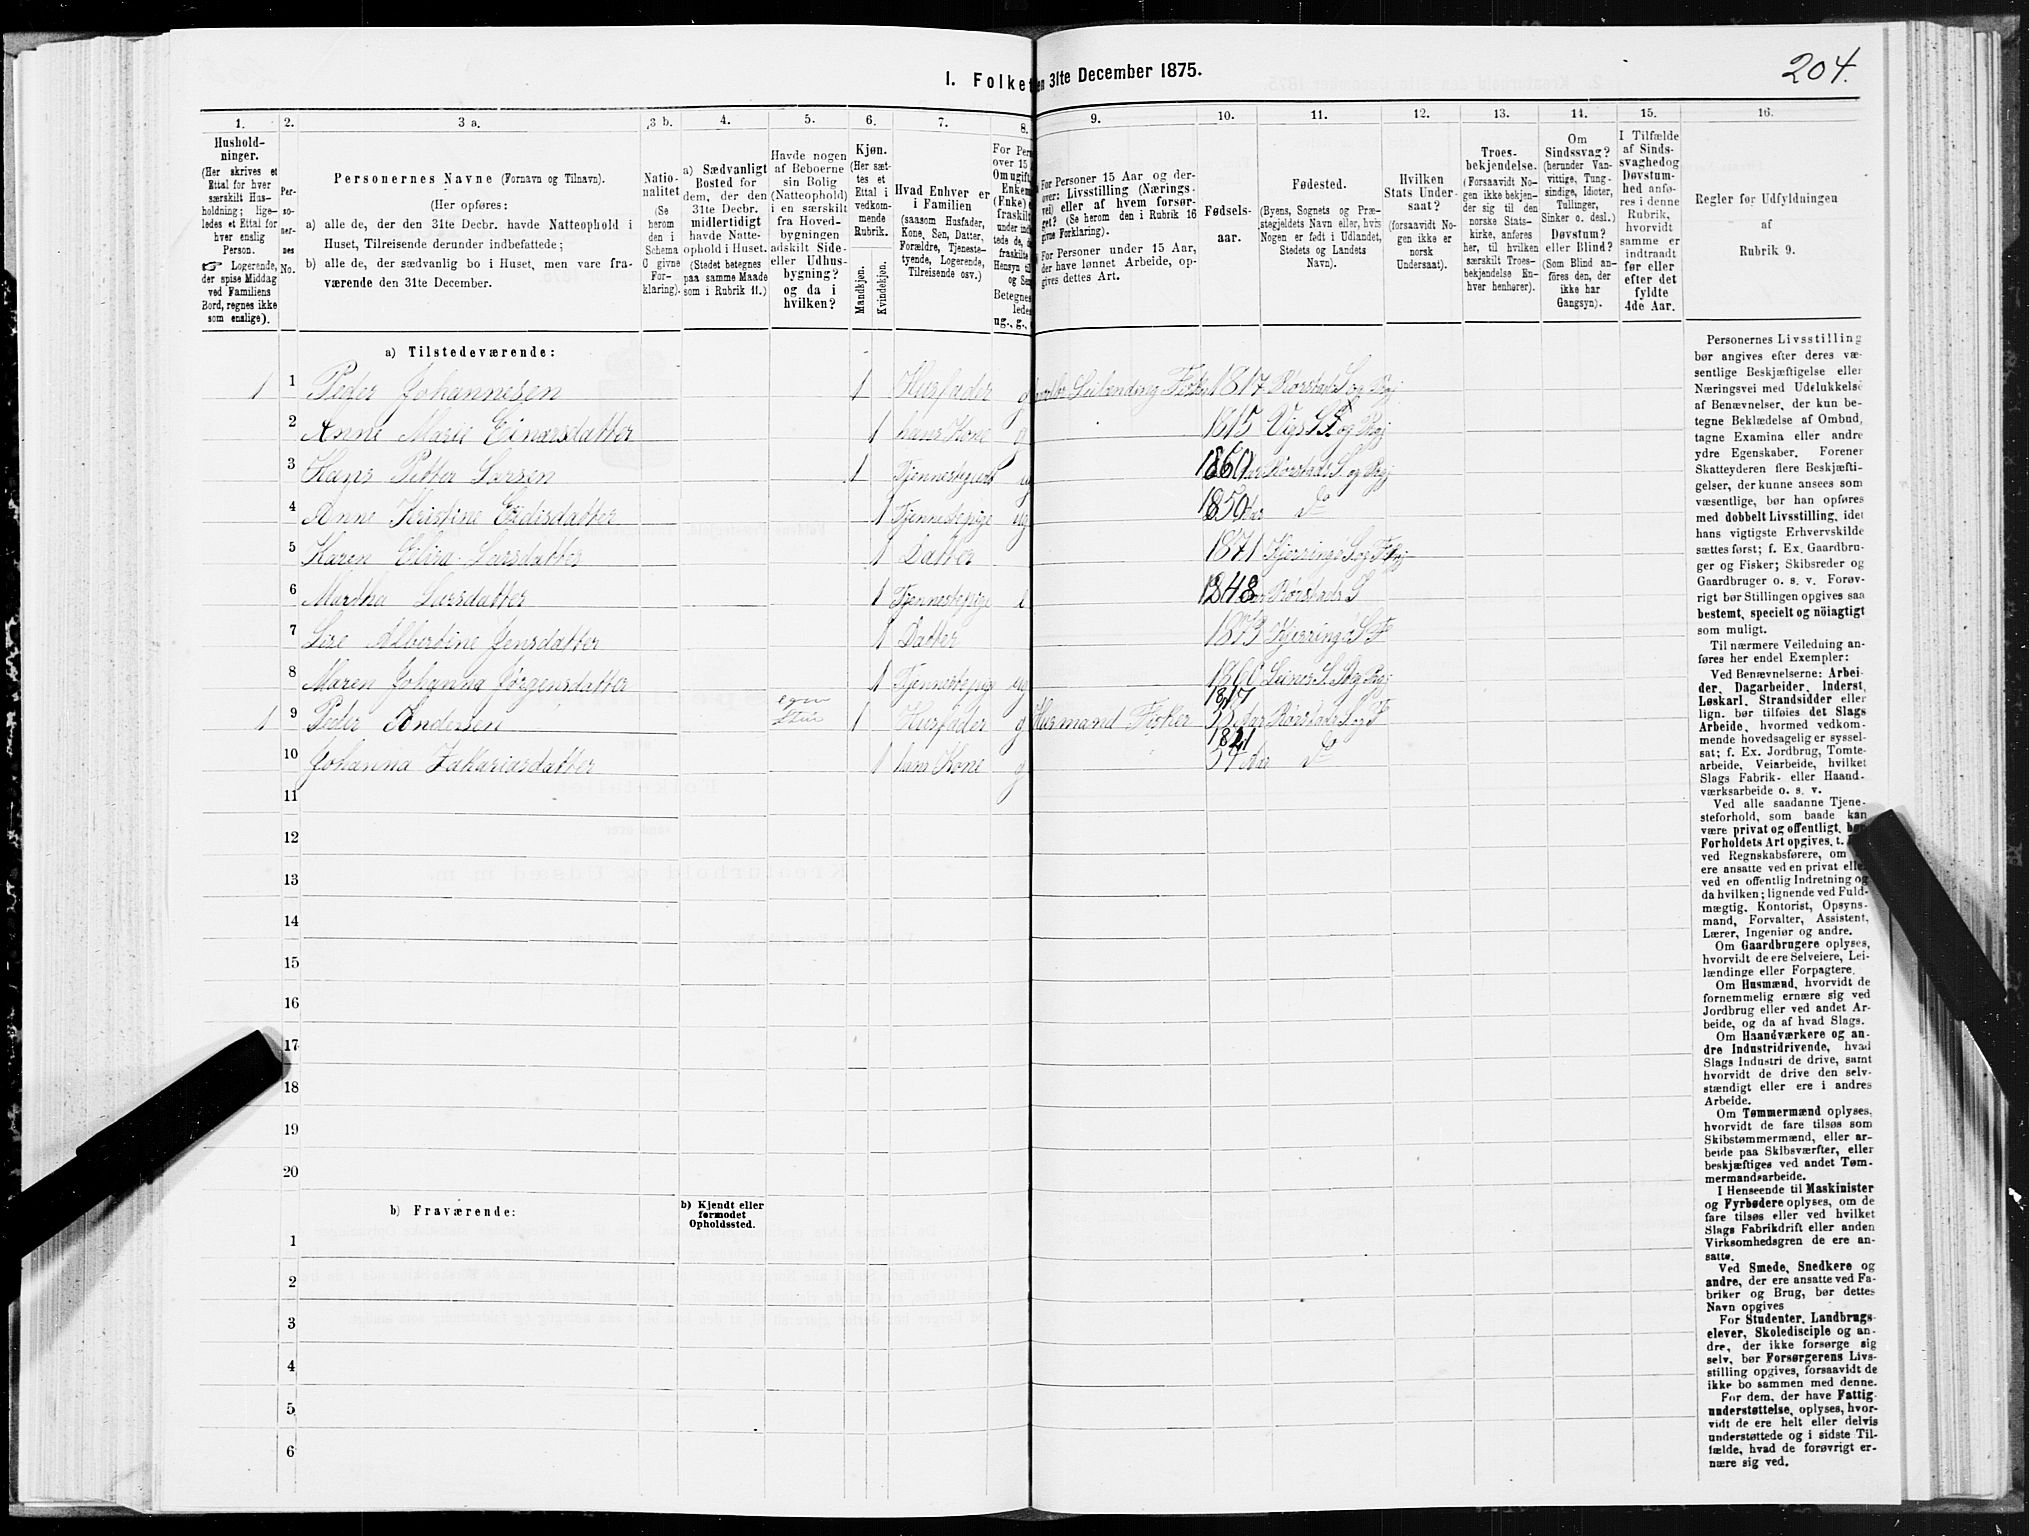 204.
I. Folket
en 31te December 1875.
1.
2.
3 a.
3 b.
4.
5.
6.
7.
8.
9.
10.
11.
12.
13.
14.
15.
16.
Hushold-
ninger.
(Her skrives et
Ettal for hver
særskilt Hus-
holdning; lige-
ledes et Ettal for
hver enslig
Person.
☞ Logerende,
der spise Middag
ved Familiens
Bord, regnes ikke
som enslige).
Per-
so-
ner-
nes
No.
Personernes Navne (Fornavn og Tilnavn).
(Her opføres:
a) alle de, der den 31te Decbr. havde Natteophold i
Huset, Tilreisende derunder indbefattede;
b) alle de, der sædvanlig bo i Huset, men vare fra-
værende den 31te December.
Natio-
nalitet
(Se
herom
den i
Schema
C givne
For-
klaring).
a) Sædvanligt
Bosted for
dem, der den
31te Decbr.
midlertidigt
havde Natte-
ophold i Huset.
(Stedet betegnes
paa samme Maade
som i Rubrik 11.)
Havde nogen
af Beboerne
sin Bolig
(Natteophold)
i en særskilt
fra Hoved-
bygningen
adskilt Side-
eller Udhus-
bygning?
og da i
hvilken?
Kjøn.
(Her sæt-
tes et
Ettal i
vedkom-
mende
Rubrik.
Mandkjøn.
Kvindekjøn.
Hvad Enhver er
i Familien
(saasom Husfader,
Kone, Søn, Datter,
Forældre, Tjeneste-
tyende, Logerende,
Tilreisende osv.)
For Per
over 15
Om ugift,
Enkem
(Fnke)
fraskilt
under ind
tede de,
fraskilte
Hensyn til
og Sen
Betegnes
ledes
ug., g.,
For Personer 15 Aar og der-
over: Livsstilling (Nærings-
vei) eller af hvem forsør-
get? (Se herom den i Rubrik 16
givne Forklaring).
For Personer under 15 Aar,
der have lønnet Arbeide, op-
gives dettes Art.
Fødsels-
aar.
Fødested.
(Byens, Sognets og Præ-
stegjeldets Navn eller, hvis
Nogen er født i Udlandet,
Stedets og Landets
Navn).
Hvilken
Stats Under-
saat?
(forsaavidt No-
gen ikke er
norsk
Undersaat).
Troes-
bekjendelse.
(Forsaavidt No-
gen ikke bekjen-
der sig til den
norske Stats-
kirke, anføres
her, til hvilken
særskilt Troes-
bekjendelse En-
hver henhører).
Om
Sindssvag?
(herunder Van-
vittige, Tung-
sindige, Idioter,
Tullinger,
Sinker o. desl.)
Døvstum?
eller Blind?
(Som Blind an-
føres den, der
ikke har
Gangsyn).
I Tilfælde
af Sinds-
svaghedog
Døvstum-
hed anfø-
res i denne
Rubrik,
hvorvidt
samme er
indtraadt
før eller
efter det
fyldte
4de Aar.
Regler før Udfyldningen
af
Rubrik 9.
a) Tilstedeværende:
1 1 Peder Johannesen 1 Husfader g Leilending Fisker 1817 Rørstads S og Pgj
2 Anne Marie Einarsdatter 1 hans Kone g 1815 og Pgj
3 Hans Petter Larsen 1 ug 1860 Rørstads S og Pgj
4 Anne Kristine 1 Tjenestepige ug 1850 do
5 Karen Larsdatter 1 Datter 1871 Kjerringø S og Pgj
6 Martha Larsdatter 1 Tjenestepige 1848 Rørstads S
7 Lise Albertine Jensdatter 1 Datter 1873 Kjerringø S
8 Maren Johanna Jørgensdatter 1 Tjenestepige ug 1860
1 9 Peder Andersen egen Stue 1 Husfader g Husmand Fisker 1817 Rørstads S og
10 Johanna Zakariasdatter 1 hans Kone g 1821 54 Aar do
11
12
13
14
15
16
17
18
19
20
b) Fraværende:
b) Kjendt eller
formodet
Opholdssted.
1
2
3
4
5
6
Personernes Livsstilling
bør angives efter deres væ-
sentlige Beskjæftigelse eller
Næringsvei med Udelukkelse
af Benævnelser, der kun be-
tegne Beklædelse af Ombud,
tagne Examina eller andre
ydre Egenskaber. Forener
Skatteyderen flere Beskjæfti-
gelser, der kunne ansees som
væsentlige, bør han opføres
med dobbelt Livsstilling, idet
hans vigtigste Erhvervskilde
sættes først; f. Ex. Gaardbru-
ger og Fisker; Skibsreder og
Gaardbruger o. s. v. Forøv-
rigt bør Stillingen opgives saa
bestemt, specielt og nöiagtigt
som muligt.
Til nærmere Veiledning an-
føres her endel Exempler:
Ved Benævnelserne: Arbei-
der, Dagarbeider, Inderst,
Løskarl, Strandsidder eller
lign. bør tilføies det Slags
Arbeide, hvormed vedkom-
mende hovedsagelig er syssel-
sat; f. Ex. Jordbrug, Tomte-
arbeide, Veiarbeide, hvilket
Slags Fabrik- eller Haand-
værksarbeide o. s. v.
Ved alle saadanne Tjene-
steforhold, som baade kan
være privat og offentligt, bør
Forholdets Art opgives, t.
ved Regnskabsførere, om
ere ansatte ved en privat elle
ved en offentlig Indretning og
da hvilken; lignende ved Fuld-
mægtig, Kontorist, Opsyns-
mand, Forvalter, Assistent,
Lærer, Ingeniør og andre.
Om Gaardbrugere oplyses,
hvorvidt de ere Selveiere, Lei-
lændinge eller Forpagtere.
Om Husmænd, hvorvidt de
fornemmelig ernære sig ved
Jordbrug eller ved andet Ar-
beide, og da af hvad Slags.
Om Haandværkere og an-
dre Industridrivende, hvad
Slags Industri de drive, samt
hvorvidt de drive den selv-
stændigt eller ere i andres
Arbeide.
Om Tømmermænd oplyses,
hvorvidt de fare tilsøs som
Skibstømmermænd, eller ar-
beide paa Skibsværfter, eller
beskjæftiges ved andet Tøm-
mermandsarbeide.
I Henseende til Maskinister
og Fyrbødere oplyses, om de
fare tilsøs eller ved hvilket
Slags Fabrikdrift eller anden
Virksomhedsgren de ere an-
satte.
Ved Smede, Snedkere og
andre, der ere ansatte ved Fa-
briker og Brug, bør dettes
Navn opgives
For Studenter, Landbrugs-
elever, Skoledisciple og an-
dre, der ikke forsørge sig
selv, bør Forsørgerens Livs-
stilling opgives, forsaavidt de
ikke bo sammen med denne.
For dem, der have Fattig-
understøttelse, oplyses, hvor-
vidt de ere helt eller delvis
understøttede og i sidste Til-
fælde, hvad de forøvrigt er-
nære sig ved.